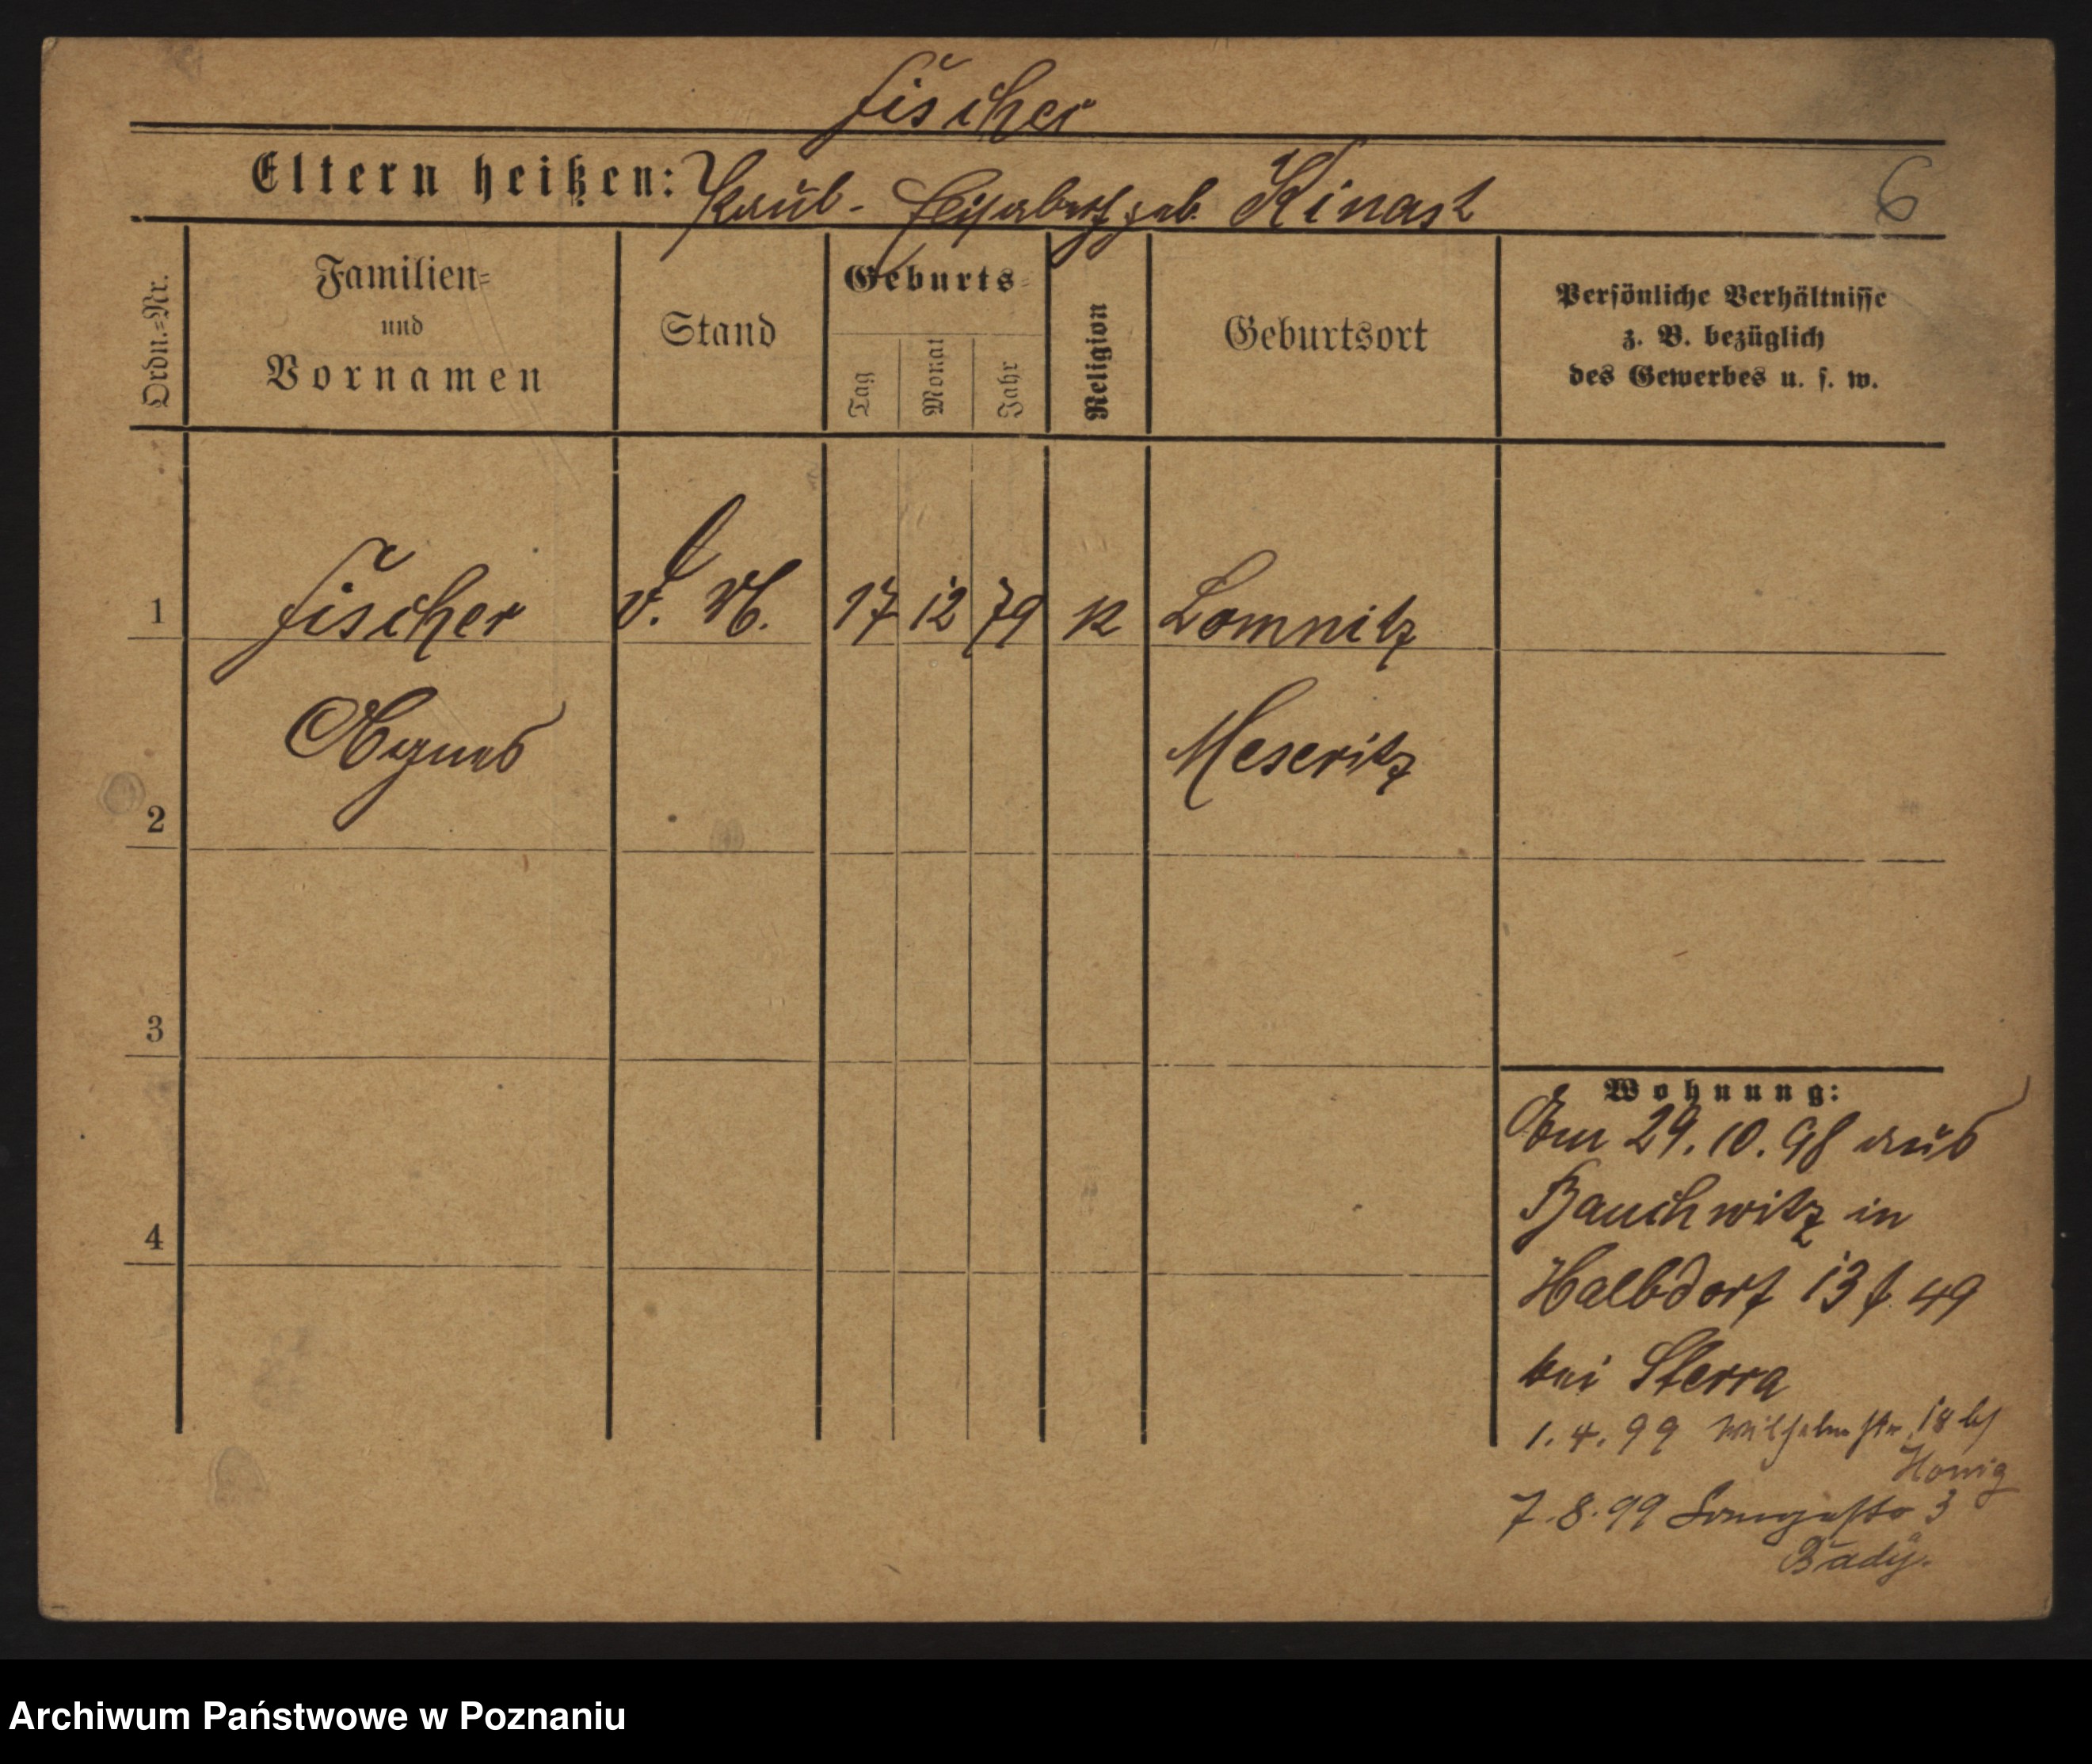 Fischer
Eltern heißen: Paul - Elisabeth geb. Kinast
6
Ordn.=Nr.
Familien=
und
Vornamen
Stand
Geburts=
Tag
Monat
Jahr
Religion
Geburtsort
Persönliche Verhältnisse
z. B. bezüglich
des Gewerbes u. s. w.
1 Fischer 17 12 79 K Lomnitz
Agnes Meseritz
2
3
4
Wohnung:
Am 29.10.98 aus
Bauchwitz in
Halbdorf 13 49
bei Sterra
1.4.99 Wilhelmstr 18 bj
Honig
7.8.99 Langestr 3
Bady.
Archiwum Państwowe w Poznaniu